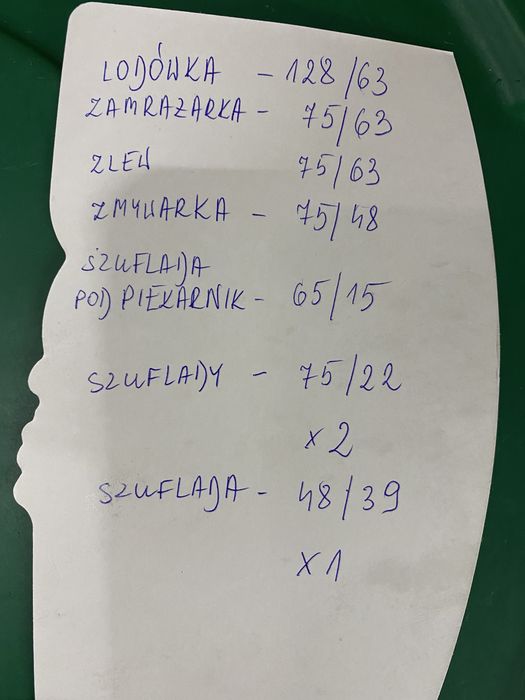 LODÓWKA - 128/63
ZAMRAŻARKA - 75/63
ZLEW 75/63
ZMYWARKA - 75/48
SZUFLADA
POD PIEKARNIK - 65/15
SZUFLADY - 75/22
x2
SZUFLADA - 48/39
x1